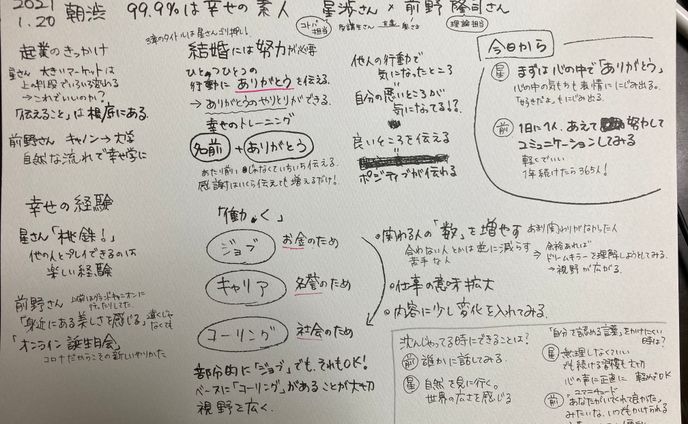 2021
1.20
朝渋 99.9%は幸せの素人
星渉さん × 前野隆司さん
コトバ担当
理論担当
起業のきっかけ
星さん 大きいマーケットは
→これでいいのか?
「伝えること」は根底にある
前野さん キャノン→大学
自然な流れで幸せ学に
幸せの経験
星さん「桃鉄!」
他の人とプレイできるのは
楽しい経験
前野さん
「身近にある美しさを感じる」
遠くじゃなくて
「オンライン誕生日会」
コロナだからこその新しいやりかた
本のタイトルは星さんゴリ押し!
結婚には努力が必要
ひとつひとつの
行動に ありがとう を伝える
→ありがとうのやりとりができる。
幸せのトレーニング
名前 + ありがとう
あたり前じゃなくていちいち伝える。
感謝はいくら伝えても増えるだけ!
他人の行動で
気になったところ
自分の悪いところが
気になってる!?
良いところを伝える
ポジティブが伝わる
今日から
星 まずは心の中で「ありがとう」
心の中の気もちも表情ににじみ出る。
「好きだよ」もにじみ出る。
前 1日に1人、あえて 努力して
コミュニケーションしてみる
軽くていい
1年続けたら365人!
「働く」
ジョブ お金のため
キャリア 名誉のため
コーリング 社会のため
部分的に「ジョブ」でも、それもOK!
ベースに「コーリング」があることが大切
視野を広く。
・関わる人の「数」を増やす
あまり関わりがなかった人
合わない人とかは逆に減らす
苦手な人
→余裕あれば
ドリームキラーを理解しようとしてみる。
→視野が広がる
・仕事の意味拡大
・内容に少し変化を入れてみる。
沈んじゃってる時にできることは?
前 誰かに話してみる。
星 自然を見に行く。
世界の広さを感じる
「自分で認める言葉」をかけたい
時は?
星 無理しなくていい
心の声に正直に
前「あなたがいてくれて良かった」
みたいな、いつもかけられる